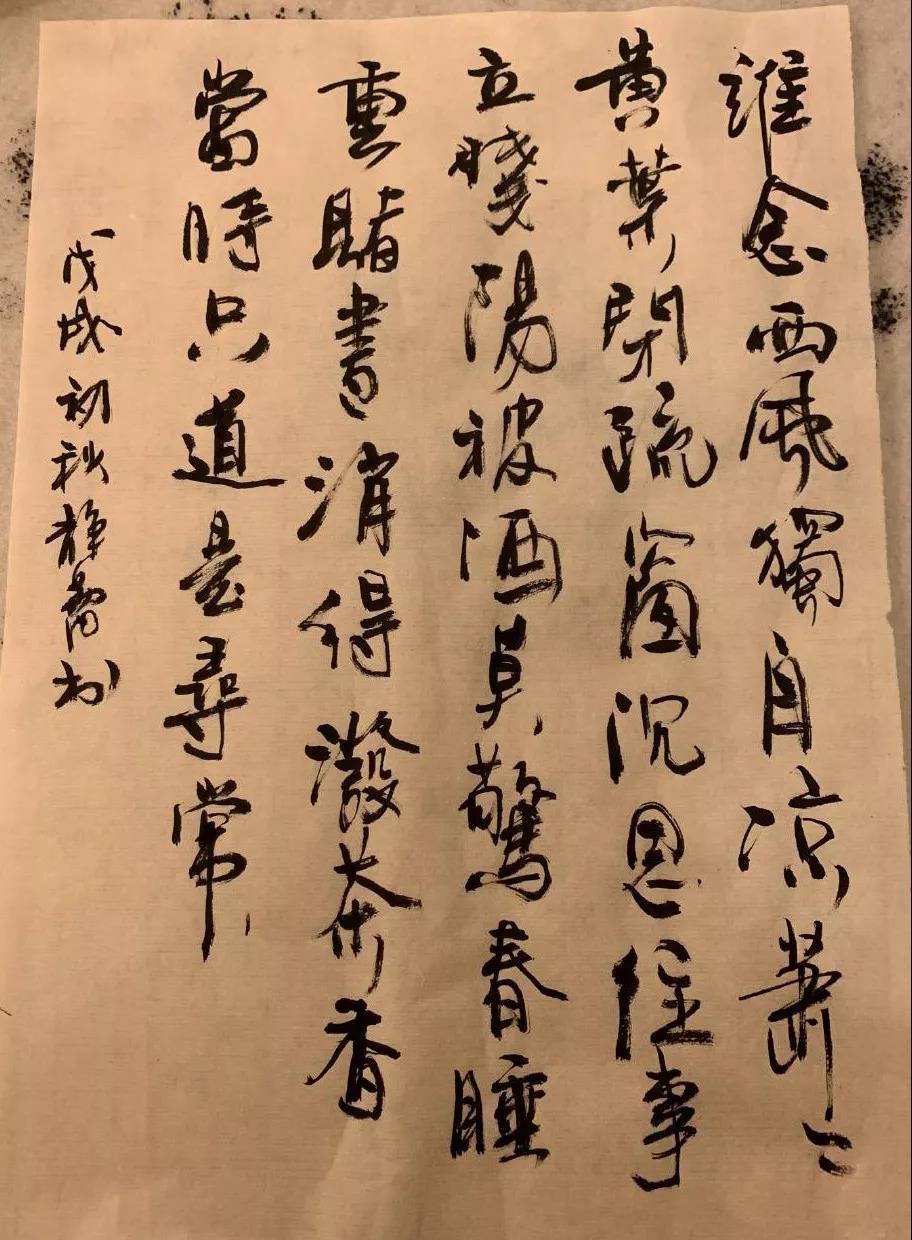 誰念西風獨自凉蕭々
黄葉閉疏窗沉思往事
立殘陽被酒莫驚春睡
重賭書消得潑茶香
當時只道是尋常
戊戌初秋静